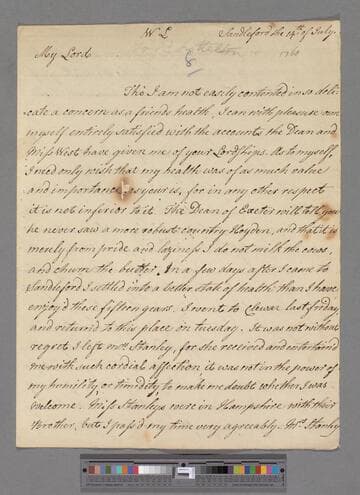 W L Sandleford the 14th of July.
1760
My Lord
8
Tho I am not easily contented in so deli-
cate a concern as a friends health, I can with pleasure own
myself entirely satisfied with the accounts the Dean and
Miss West have given me of your Lordships. As to myself,
I need only wish that my health was of as much value
and importance as yours, for in any other respect
it is not inferior to it. The Dean of Exeter will tell you
he never saw a more robust country Hoyden, and that it is
merely from pride and laziness I do not milk the cows,
and churn the butter. In a few days after I came to
Sandleford I settled into a better state of health than I have
enjoy'd these fifteen years. I went to Clewar last friday,
and returnd to this place on tuesday. It was not without
regret I left Mrs Stanley, for she received and entertaind
me with such cordial affection it was not in the power of
my humility or timidity to make me doubt whether I was
welcome. Miss Stanleys were in Hampshire with their
Brother, but I pass'd my time very agreably. Mrs Stanley